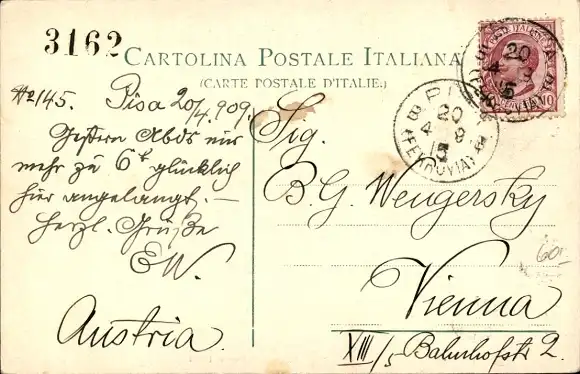 3162
CARTOLINA POSTALE ITALIANA
(CARTE POSTALE D'ITALIE)
No 145. Pisa 20/4.909.
Gestern Abds nur
mehr zu 6t glücklich
hier angelangt. —
herzl. Grüße
EW.
Austria.
Sig.
B. G. Wengersky
Vienna
XIII/5 Bahnhofstr 2.
PISA
20
4 9
(FERROVIA)
20
10
60.-